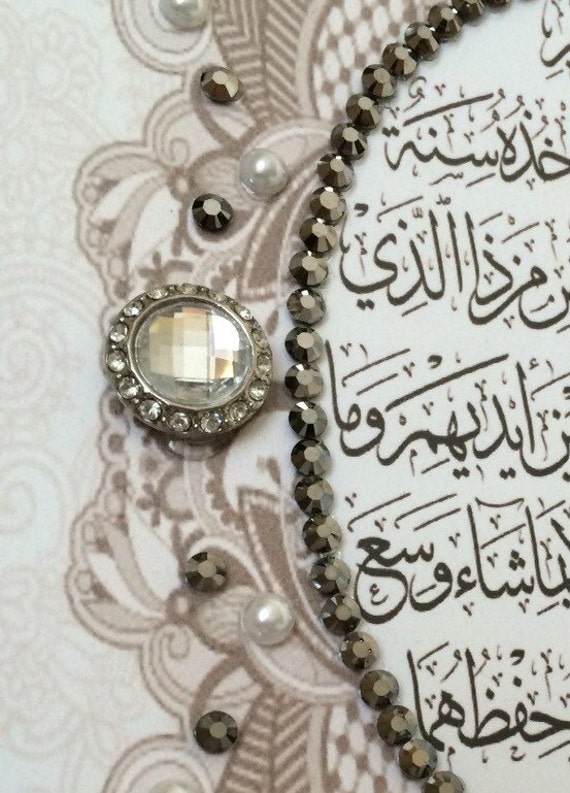 خُذُهُ سِنَةٌ
مَن ذَا الَّذِي
ـيْنَ أَيْدِيهِمْ وَمَا
بِمَا شَاءَ وَسِعَ
حِفْظُهُمَا